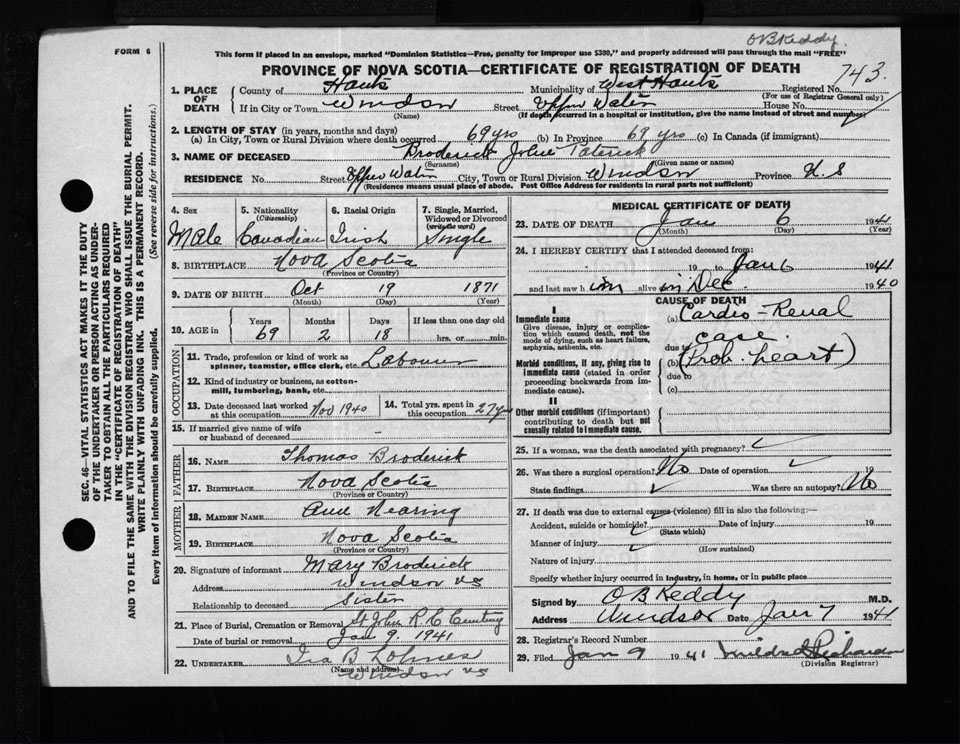 O B Keddy.
FORM 6
This form if placed in an envelope, marked "Dominion Statistics—Free, penalty for improper use $300," and properly addressed will pass through the mail "FREE"
PROVINCE OF NOVA SCOTIA—CERTIFICATE OF REGISTRATION OF DEATH
743.
SEC. 46—VITAL STATISTICS ACT MAKES IT THE DUTY
OF THE UNDERTAKER OR PERSON ACTING AS UNDER-
TAKER TO OBTAIN ALL THE PARTICULARS REQUIRED
IN THE "CERTIFICATE OF REGISTRATION OF DEATH"
AND TO FILE THE SAME WITH THE DIVISION REGISTRAR WHO SHALL ISSUE THE BURIAL PERMIT.
WRITE PLAINLY WITH UNFADING INK. THIS IS A PERMANENT RECORD.
Every item of information should be carefully supplied. (See reverse side for instructions.)
1. PLACE OF DEATH
County of Hants Municipality of West Hants Registered No.
(For use of Registrar General only)
If in City or Town Windsor Street Upper Water House No.
(Name) (If death occurred in a hospital or institution, give the name instead of street and number)
2. LENGTH OF STAY (in years, months and days)
(a) In City, Town or Rural Division where death occurred 69 yrs (b) In Province 69 yrs (c) In Canada (if immigrant)
3. NAME OF DECEASED Broderick John Patrick
(Surname) (Given name or names)
RESIDENCE No. Street Upper Water City, Town or Rural Division Windsor Province N. S
(Residence means usual place of abode. Post Office Address for residents in rural parts not sufficient)
4. Sex
Male
5. Nationality
(Citizenship)
Canadian
6. Racial Origin
Irish
7. Single, Married,
Widowed or Divorced
(write the word)
Single
8. BIRTHPLACE Nova Scotia
(Province or Country)
9. DATE OF BIRTH Oct 19 1871
(Month) (Day) (Year)
10. AGE in Years Months Days If less than one day old
69 2 18 hrs. or min.
OCCUPATION
11. Trade, profession or kind of work as
spinner, teamster, office clerk, etc. Labourer
12. Kind of industry or business, as cotton-
mill, lumbering, bank, etc.
13. Date deceased last worked
at this occupation Nov 1940
14. Total yrs. spent in
this occupation 27 yrs
15. If married give name of wife
or husband of deceased —
FATHER
16. NAME Thomas Broderick
17. BIRTHPLACE Nova Scotia
(Province or Country)
MOTHER
18. MAIDEN NAME Ann Nearing
19. BIRTHPLACE Nova Scotia
(Province or Country)
20. Signature of informant Mary Broderick
Address Windsor NS
Relationship to deceased Sister
21. Place of Burial, Cremation or Removal St John R. C Cemetery
Date of burial or removal Jan 9. 1941
22. UNDERTAKER Ira B
(Name and address)
Windsor NS
MEDICAL CERTIFICATE OF DEATH
23. DATE OF DEATH Jan 6 1941
(Month) (Day) (Year)
24. I HEREBY CERTIFY that I attended deceased from:
19 to Jan 6 1941
and last saw h im alive in Dec 1940
CAUSE OF DEATH
I
Immediate cause
Give disease, injury or complica-
tion which caused death, not the
mode of dying, such as heart failure,
asphyxia, asthenia, etc.
(a) Cardio-Renal
due to
Morbid conditions, if any, giving rise to
immediate cause (stated in order
proceeding backwards from im-
mediate cause).
(b) (Prob. heart)
due to
(c)
II
Other morbid conditions (if important)
contributing to death but not
causally related to immediate cause.
25. If a woman, was the death associated with pregnancy?
26. Was there a surgical operation? No Date of operation
State findings Was there an autopsy? No
27. If death was due to external causes (violence) fill in also the following:—
Accident, suicide or homicide? Date of injury 19
(State which)
Manner of injury
(How sustained)
Nature of injury
Specify whether injury occurred in industry, in home, or in public place
Signed by O B Keddy M.D.
Address Windsor Date Jan 7 1941
28. Registrar's Record Number
29. Filed Jan 9 1941 Mildred Richardson
(Division Registrar)